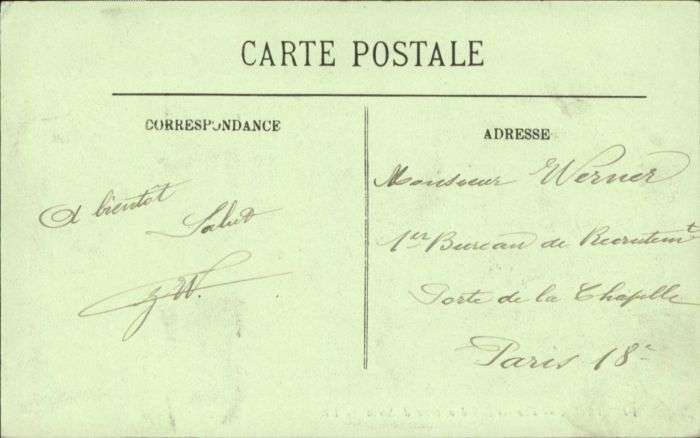 CARTE POSTALE
CORRESPONDANCE
A bientôt
Salut
ADRESSE
Monsieur Werner
1er Bureau de Recrutemt
Porte de la Chapelle
Paris 18e